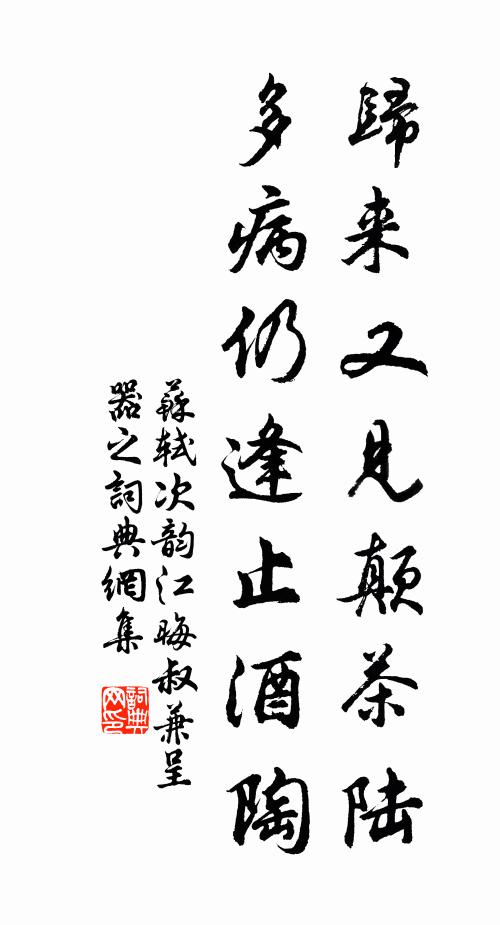 歸来又見顛茶陆
多病仍逢止酒陶
蘇轼次韵江晦叔兼呈
器之詞典網集
詞典
网印